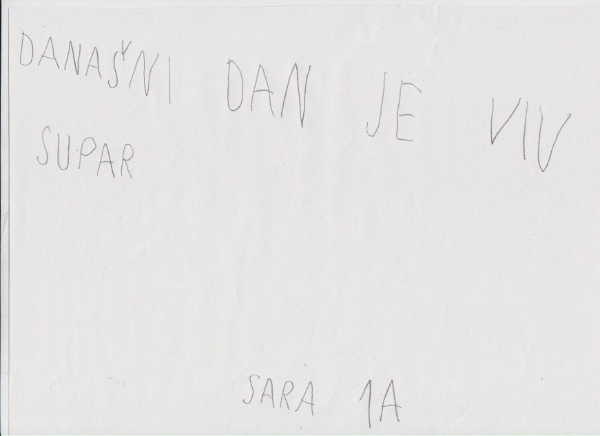 DANAŠNI DAN JE VIV
SUPAR
SARA 1A